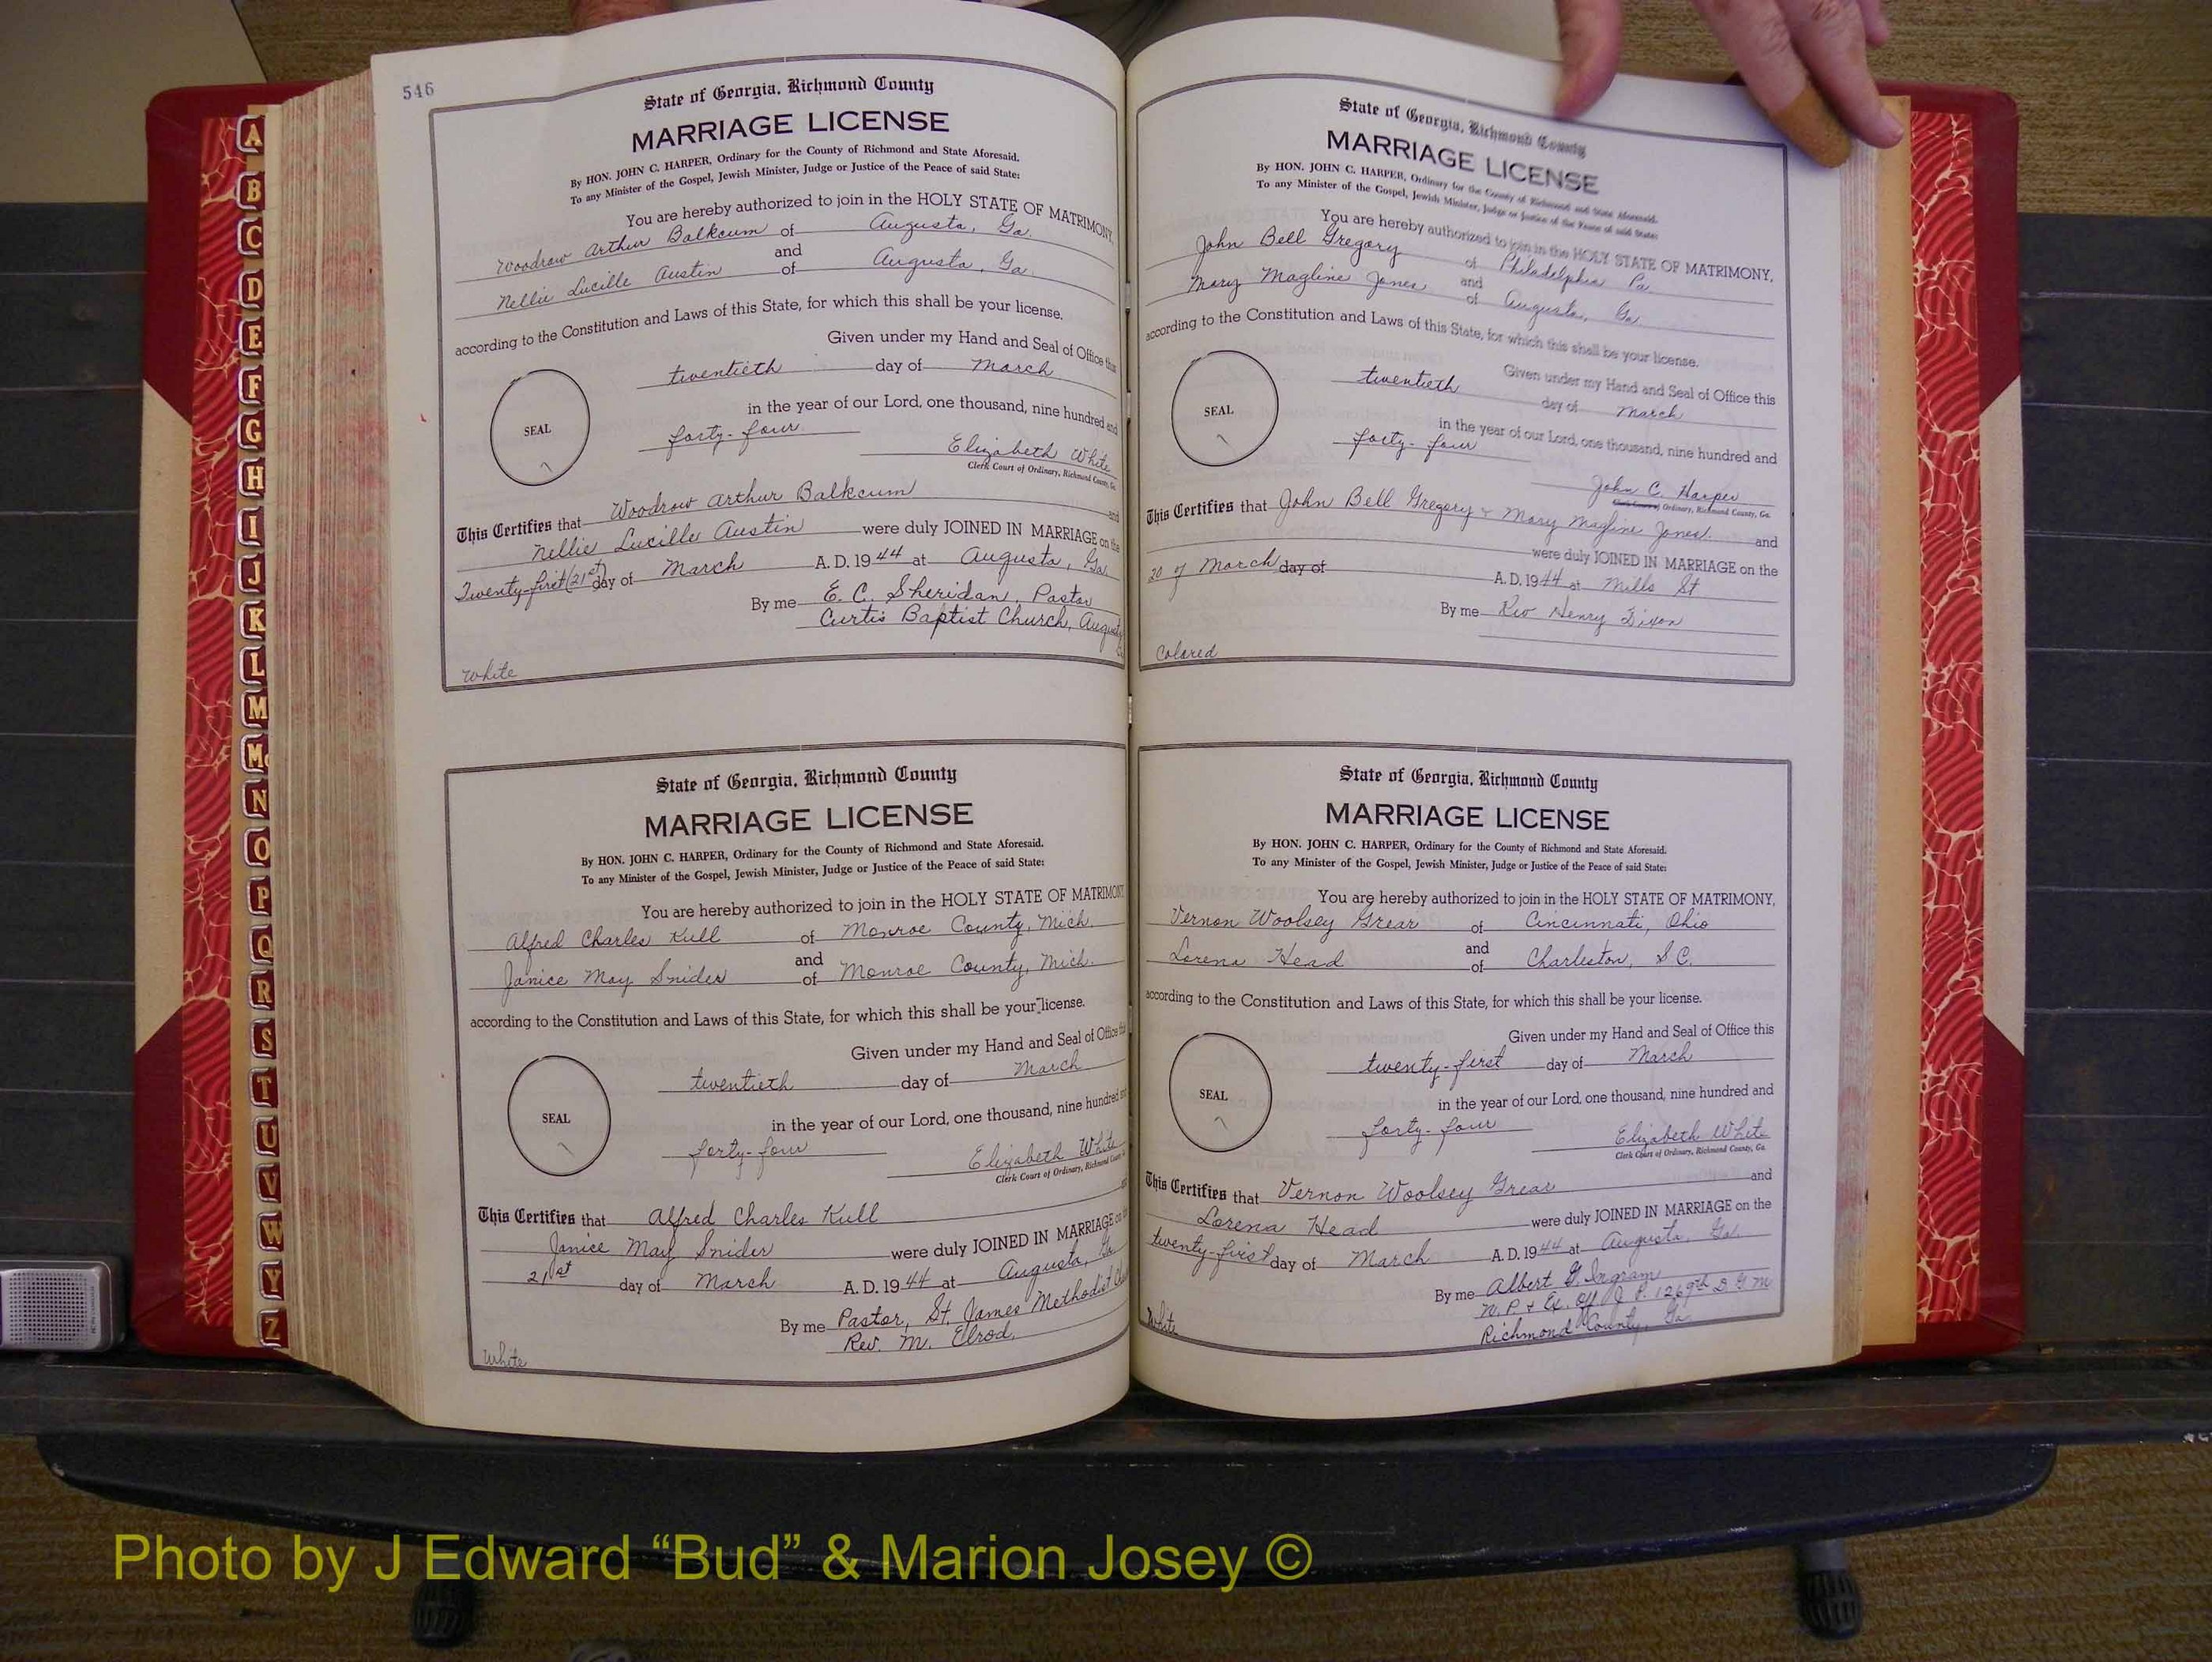 546
State of Georgia, Richmond County
MARRIAGE LICENSE
By HON. JOHN C. HARPER, Ordinary for the County of Richmond and State Aforesaid.
To any Minister of the Gospel, Jewish Minister, Judge or Justice of the Peace of said State:
You are hereby authorized to join in the HOLY STATE OF MATRIMONY,
Woodrow Arthur Balkcum of Augusta, Ga.
and
Nellie Lucille Austin of Augusta, Ga.
according to the Constitution and Laws of this State, for which this shall be your license.
Given under my Hand and Seal of Office this
twentieth day of March
in the year of our Lord, one thousand, nine hundred and
SEAL
forty-four
Elizabeth White
Clerk Court of Ordinary, Richmond County, Ga.
This Certifies that Woodrow Arthur Balkcum and
Nellie Lucille Austin were duly JOINED IN MARRIAGE on the
Twenty-first (21st) day of March A. D. 1944 at Augusta, Ga.
By me E. C. Sheridan, Pastor
Curtis Baptist Church, Augusta
White
State of Georgia, Richmond County
MARRIAGE LICENSE
By HON. JOHN C. HARPER, Ordinary for the County of Richmond and State Aforesaid.
To any Minister of the Gospel, Jewish Minister, Judge or Justice of the Peace of said State:
You are hereby authorized to join in the HOLY STATE OF MATRIMONY
Alfred Charles Kull of Monroe County, Mich.
and
Janice May Snider of Monroe County, Mich.
according to the Constitution and Laws of this State, for which this shall be your license.
Given under my Hand and Seal of Office this
twentieth day of March
SEAL
in the year of our Lord, one thousand, nine hundred and
forty-four
Elizabeth White
Clerk Court of Ordinary, Richmond County
This Certifies that Alfred Charles Kull and
Janice May Snider were duly JOINED IN MARRIAGE on
21st day of March A. D. 1944 at Augusta, Ga
By me Pastor, St. James Methodist
Rev. M. Elrod.
White
State of Georgia, Richmond County
MARRIAGE LICENSE
By HON. JOHN C. HARPER, Ordinary for the County of Richmond and State Aforesaid.
To any Minister of the Gospel, Jewish Minister, Judge or Justice of the Peace of said State:
You are hereby authorized to join in the HOLY STATE OF MATRIMONY,
John Bell Gregory of Philadelphia Pa.
and
Mary Magline Jones of Augusta, Ga.
according to the Constitution and Laws of this State, for which this shall be your license.
Given under my Hand and Seal of Office this
twentieth day of March
SEAL
in the year of our Lord, one thousand, nine hundred and
forty-four
John C. Harper
Clerk Court of Ordinary, Richmond County, Ga.
This Certifies that John Bell Gregory & Mary Magline Jones. and
were duly JOINED IN MARRIAGE on the
20 of March day of A. D. 1944 at Mills St
By me Rev Henry Dixon
Colored
State of Georgia, Richmond County
MARRIAGE LICENSE
By HON. JOHN C. HARPER, Ordinary for the County of Richmond and State Aforesaid.
To any Minister of the Gospel, Jewish Minister, Judge or Justice of the Peace of said State:
You are hereby authorized to join in the HOLY STATE OF MATRIMONY,
Vernon Woolsey Grear of Cincinnati, Ohio
and
Lorena Head of Charleston, S.C.
according to the Constitution and Laws of this State, for which this shall be your license.
Given under my Hand and Seal of Office this
twenty-first day of March
SEAL
in the year of our Lord, one thousand, nine hundred and
forty-four
Elizabeth White
Clerk Court of Ordinary, Richmond County, Ga.
This Certifies that Vernon Woolsey Grear and
Lorena Head were duly JOINED IN MARRIAGE on the
twenty-first day of March A. D. 1944 at Augusta, Ga.
By me Albert G. Ingram
N. P. & Ex. Off. J. P. 1269th D. G. M
Richmond County, Ga.
White
A
B
C
D
E
F
G
H
I
J
K
L
M
Mc
N
O
P
Q
R
S
T
U
V
W
Y
Z
Photo by J Edward “Bud” & Marion Josey ©